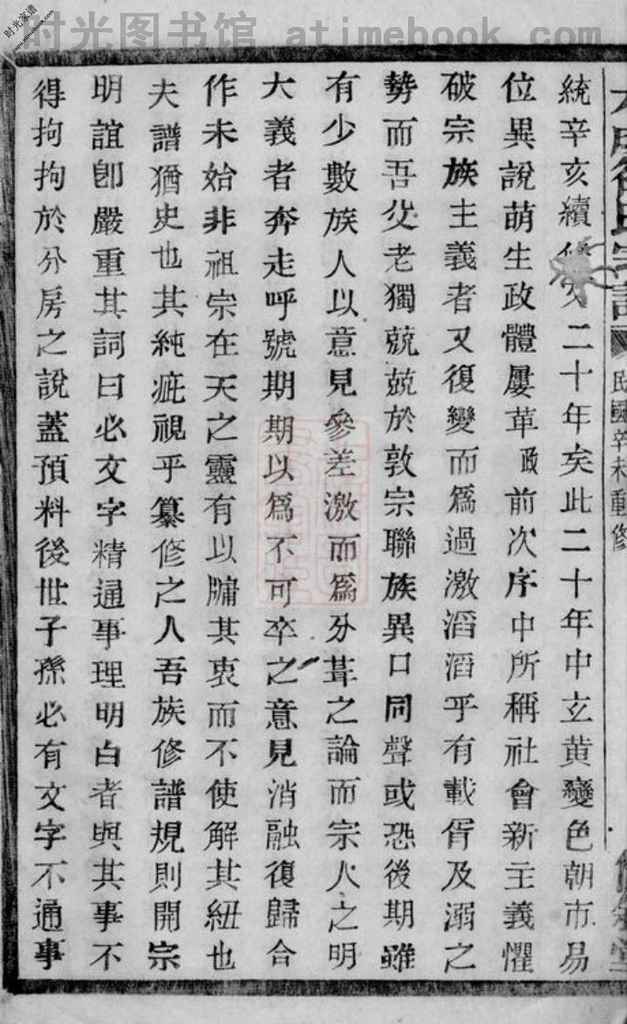 时光图书馆 atimebook.com
时光家谱
氏宗譜 民國辛未重修
統辛亥續修二十年矣此二十年中玄黃變色朝市易
位異說萌生政體屢革政前次序中所稱社會新主義懼
破宗族主義者又復變而爲過激滔滔乎有載胥及溺之
勢而吾父老獨兢兢於敦宗聯族異口同聲或恐後期雖
有少數族人以意見參差激而爲分葺之論而宗人之明
大義者奔走呼號期期以爲不可卒之意見消融復歸合
作未始非祖宗在天之靈有以牖其衷而不使解其紐也
夫譜猶史也其純疵視乎纂修之人吾族修譜規則開宗
明誼卽嚴重其詞曰必文字精通事理明白者與其事不
得拘拘於分房之說蓋預料後世子孫必有文字不通事